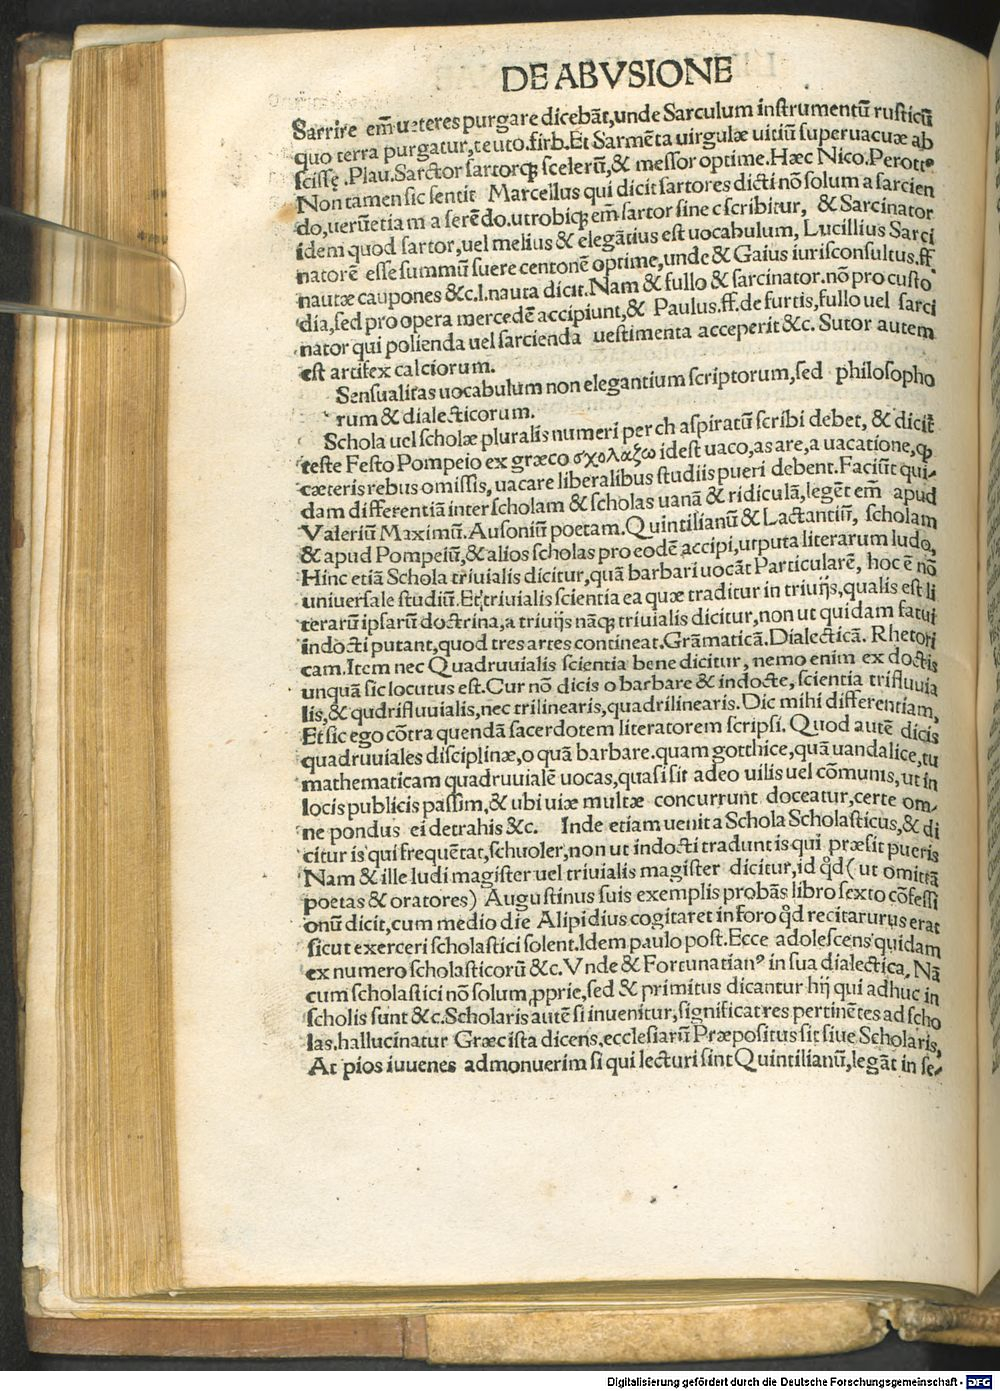 DE ABVSIONE
Sarrire em̃ ueteres purgare dicebãt,unde Sarculum inſtrumentũ ruſticũ
quo terra purgatur,teuto.ſirb.Et Sarmẽta uirgulæ uitiũ ſuperuacuæ ab
ſciſſę.Plau.Sarctor ſartorqꝫ ſcelerũ,& meſſor optime.Hæc Nico.Perottꝰ
Non tamen ſic ſentit Marcellus qui dicit ſartores dicti nõ ſolum a ſarcien
do,uerũetiam a ſerẽdo.utrobiqꝫ em̃ ſartor ſine c ſcribitur, & Sarcinator
idem quod ſartor,uel melius & elegãtius eſt uocabulum, Lucillius Sarci
natorẽ eſſe ſummũ ſuere centonẽ optime,unde & Gaius iuriſconſultus.ff.
nautæ caupones &c.l.nauta dicit.Nam & fullo & ſarcinator.nõ pro cuſto
dia,ſed pro opera mercedẽ accipiunt,& Paulus.ff.de furtis,fullo uel ſarci
nator qui polienda uel ſarcienda ueſtimenta acceperit &c. Sutor autem
eſt artifex calciorum.
Senſualitas uocabulum non elegantium ſcriptorum,ſed philoſopho
rum & dialecticorum.
Schola uel ſcholæ pluralis numeri per ch aſpiratũ ſcribi debet, & dicit̃
teſte Feſto Pompeio ex græco σχολαζω id eſt uaco,as are,a uacatione,ꝙ
cæteris rebus omiſſis, uacare liberalibus ſtudiis pueri debent.Faciũt qui-
dam differentiã inter ſcholam & ſcholas uanã & ridiculã,legẽt em̃ apud
Valeriũ Maximũ.Auſoniũ poetam.Quintilianũ & Lactantiũ, ſcholam
& apud Pompeiũ,& alios ſcholas pro eodẽ accipi,utputa literarum ludo,
Hinc etiã Schola triuialis dicitur,quã barbari uocãt Particularẽ, hoc ẽ nõ
uniuerſale ſtudiũ.Et triuialis ſcientia ea quæ traditur in triuijs,qualis eſt li
terarũ ipſarũ doctrina,a triuijs nãqꝫ triuialis dicitur,non ut quidam fatui
indocti putant,quod tres artes contineat.Grãmaticã.Dialecticã. Rhetori
cam.Item nec Quadruuialis ſcientia bene dicitur, nemo enim ex doctis
unquã ſic locutus eſt.Cur nõ dicis o barbare & indocte, ſcientia trifluuia
lis,& qudrifluuialis,nec trilinearis,quadrilinearis.Dic mihi differentiam,
Et ſic ego cõtra quendã ſacerdotem literatorem ſcripſi. Quod autẽ dicis
quadruuiales diſciplinæ,o quã barbare.quam gotthice,quã uandalice,tu
mathematicam quadruuialẽ uocas,quaſi ſit adeo uilis uel cõmunis,ut in
locis publicis paſſim,& ubi uiæ multæ concurrunt doceatur,certe om-
ne pondus ei detrahis &c. Inde etiam uenit a Schola Scholaſticus,& di
citur is qui frequẽtat,ſchuoler,non ut indocti tradunt is qui præſit pueris
Nam & ille ludi magiſter uel triuialis magiſter dicitur,id qd̃ ( ut omittã
poetas & oratores) Auguſtinus ſuis exemplis probãs libro ſexto cõfeſſi
onũ dicit,cum medio die Alipidius cogitaret in foro qd̃ recitaturus erat
ſicut exerceri ſcholaſtici ſolent.Idem paulo poſt.Ecce adoleſcens quidam
ex numero ſcholaſticorũ &c.Vnde & Fortunatianꝰ in ſua dialectica, Nã
cum ſcholaſtici nõ ſolum,ꝓprie,ſed & primitus dicantur hij qui adhuc in
ſcholis ſunt &c.Scholaris autẽ ſi inuenitur,ſignificat res pertinẽtes ad ſcho
las.hallucinatur Græciſta dicens,eccleſiarũ Præpoſitus ſit ſiue Scholaris,
At pios iuuenes admonuerim ſi qui lecturi ſint Quintilianũ,legãt in ſe-
Digitalisierung gefördert durch die Deutsche Forschungsgemeinschaft - DFG